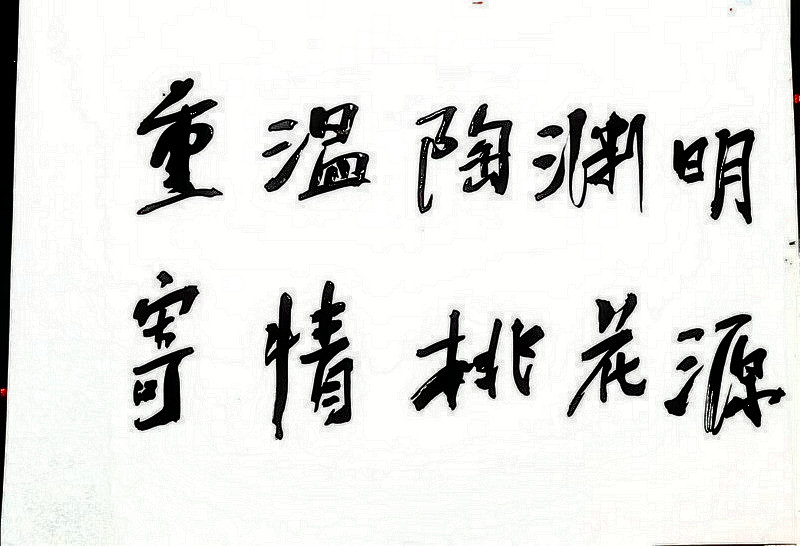 重温陶渊明
寄情桃花源